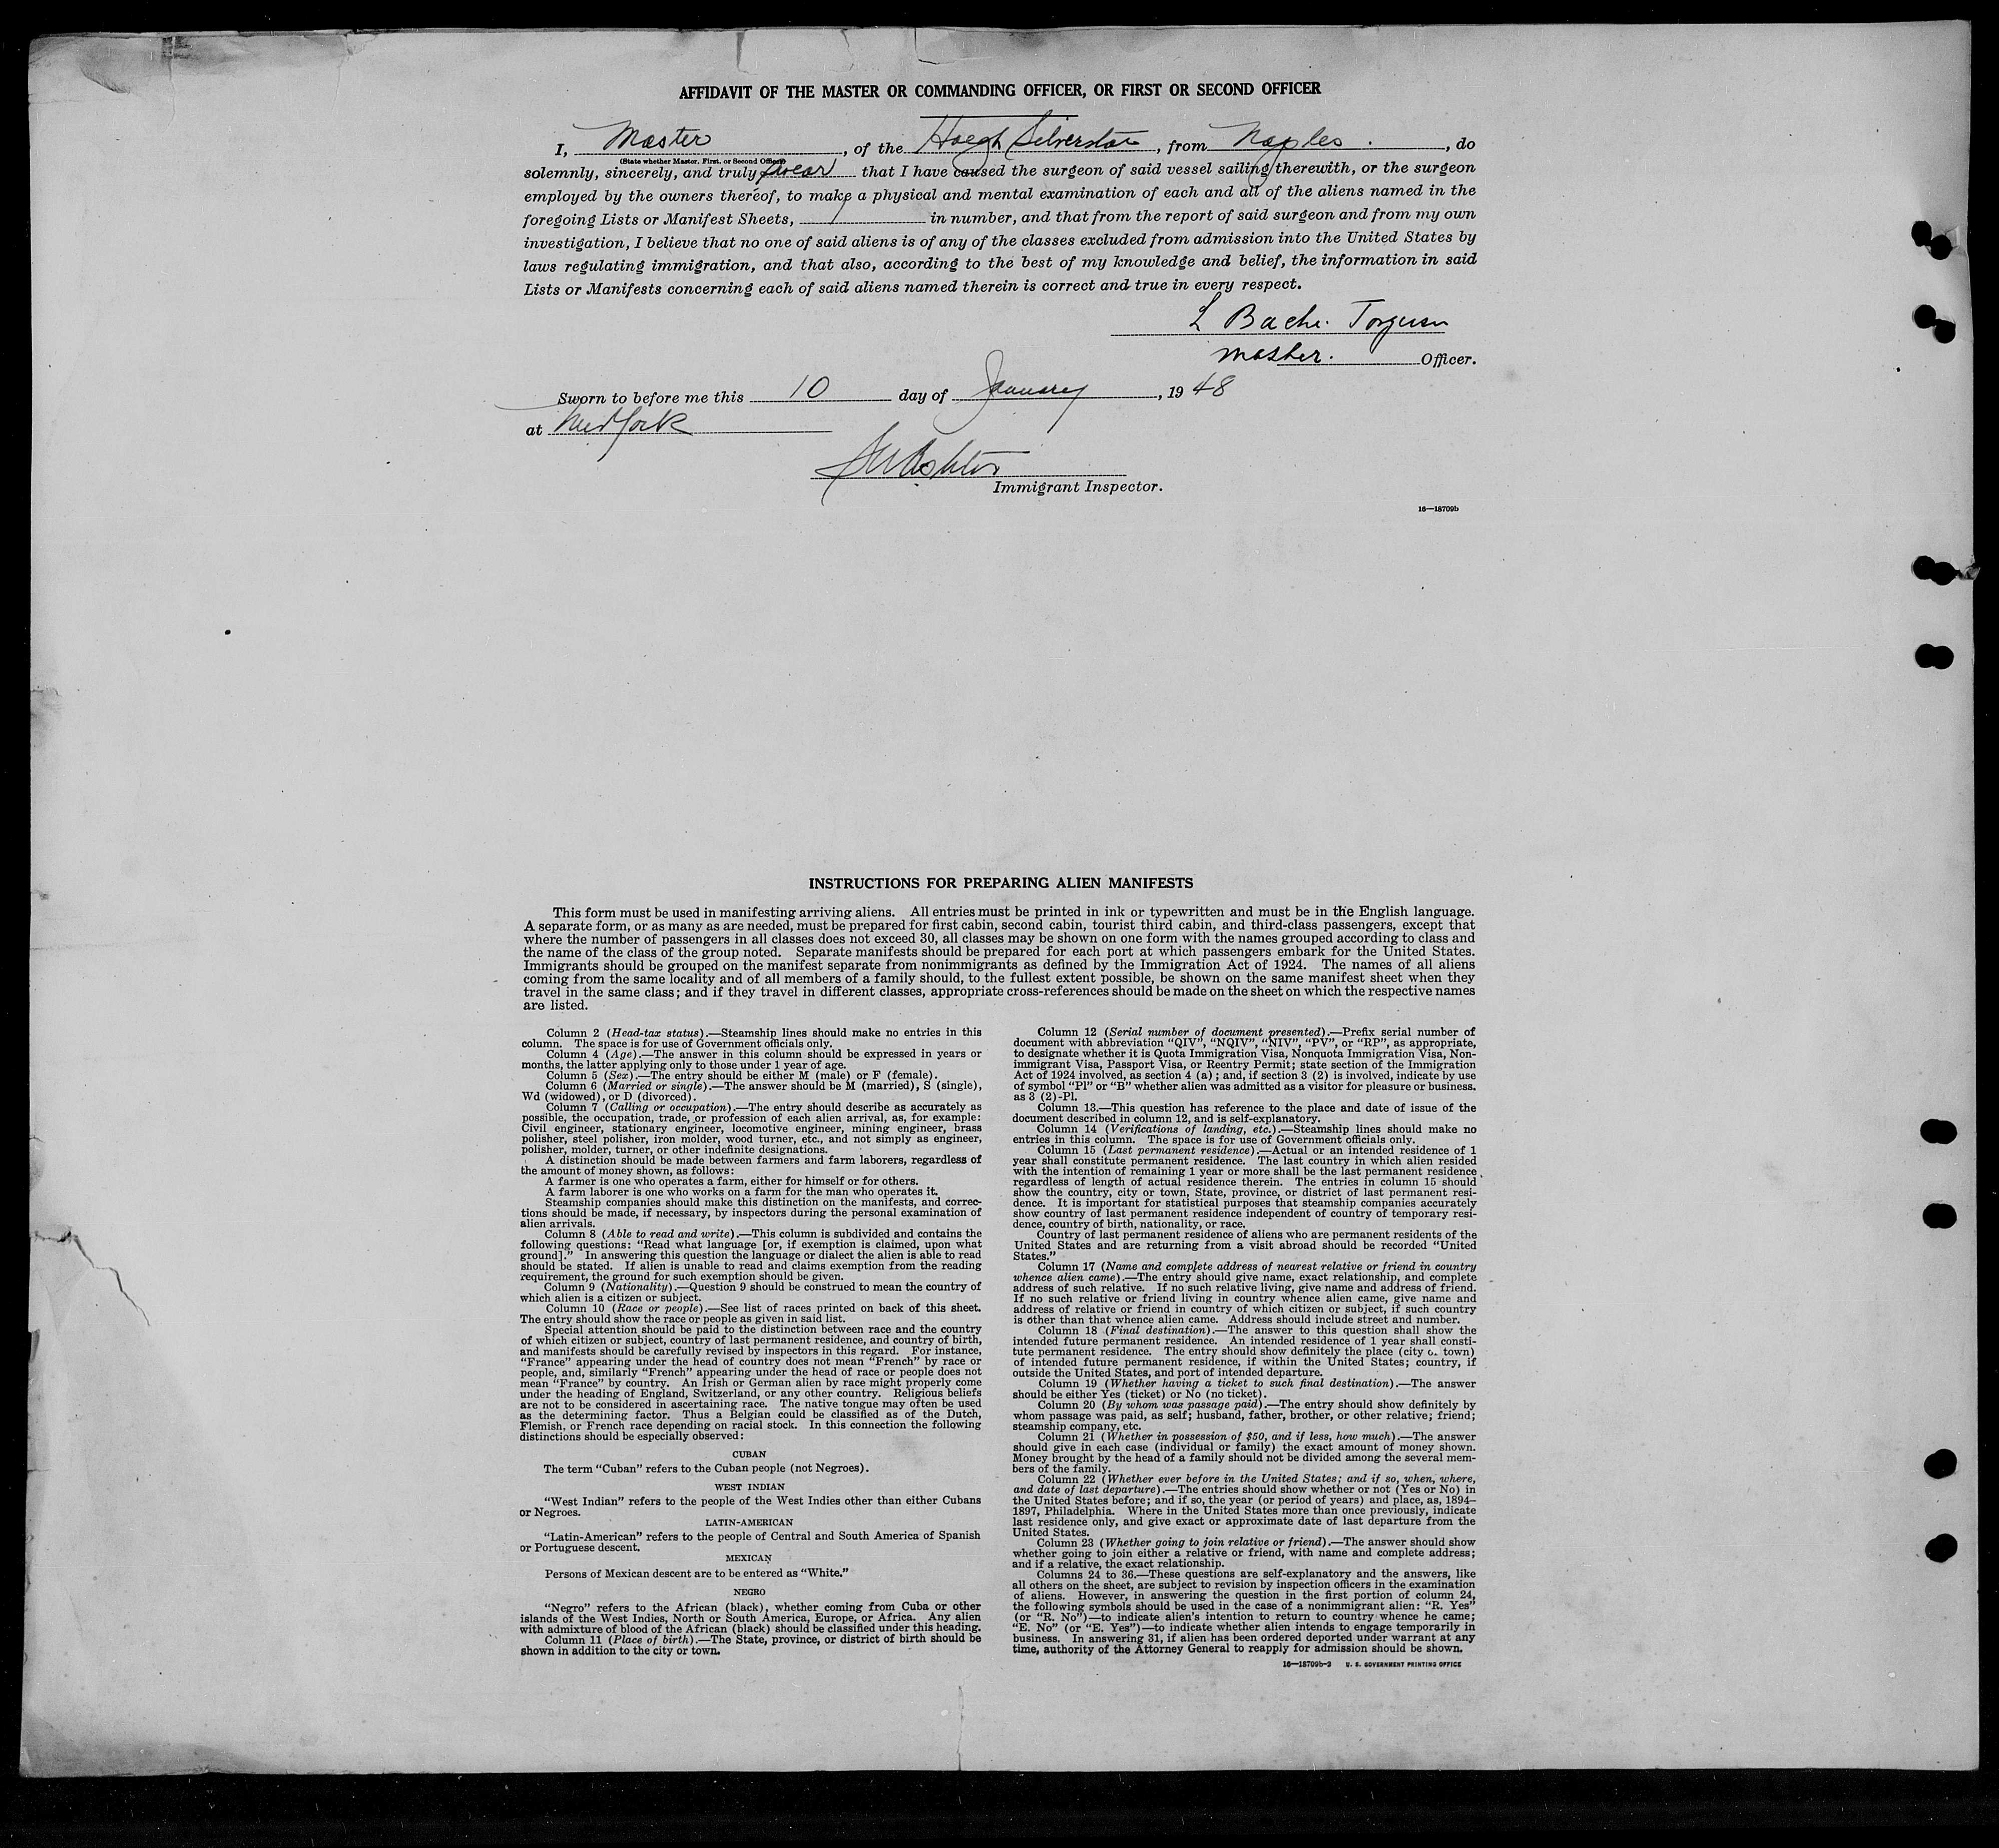 AFFIDAVIT OF THE MASTER OR COMMANDING OFFICER, OR FIRST OR SECOND OFFICER
I, Master, of the Hoegh Silverstar, from Naples., do
(State whether Master, First, or Second Officer)
solemnly, sincerely, and truly swear that I have caused the surgeon of said vessel sailing therewith, or the surgeon
employed by the owners thereof, to make a physical and mental examination of each and all of the aliens named in the
foregoing Lists or Manifest Sheets, 1 in number, and that from the report of said surgeon and from my own
investigation, I believe that no one of said aliens is of any of the classes excluded from admission into the United States by
laws regulating immigration, and that also, according to the best of my knowledge and belief, the information in said
Lists or Manifests concerning each of said aliens named therein is correct and true in every respect.
L Bache.
master. Officer.
Sworn to before me this 10 day of January, 1948
at New York
Immigrant Inspector.
16—18709b
INSTRUCTIONS FOR PREPARING ALIEN MANIFESTS
This form must be used in manifesting arriving aliens. All entries must be printed in ink or typewritten and must be in the English language.
A separate form, or as many as are needed, must be prepared for first cabin, second cabin, tourist third cabin, and third-class passengers, except that
where the number of passengers in all classes does not exceed 30, all classes may be shown on one form with the names grouped according to class and
the name of the class of the group noted. Separate manifests should be prepared for each port at which passengers embark for the United States.
Immigrants should be grouped on the manifest separate from nonimmigrants as defined by the Immigration Act of 1924. The names of all aliens
coming from the same locality and of all members of a family should, to the fullest extent possible, be shown on the same manifest sheet when they
travel in the same class; and if they travel in different classes, appropriate cross-references should be made on the sheet on which the respective names
are listed.
Column 2 (Head-tax status).—Steamship lines should make no entries in this
column. The space is for use of Government officials only.
Column 4 (Age).—The answer in this column should be expressed in years or
months, the latter applying only to those under 1 year of age.
Column 5 (Sex).—The entry should be either M (male) or F (female).
Column 6 (Married or single).—The answer should be M (married), S (single),
Wd (widowed), or D (divorced).
Column 7 (Calling or occupation).—The entry should describe as accurately as
possible, the occupation, trade, or profession of each alien arrival, as, for example:
Civil engineer, stationary engineer, locomotive engineer, mining engineer, brass
polisher, steel polisher, iron molder, wood turner, etc., and not simply as engineer,
polisher, molder, turner, or other indefinite designations.
A distinction should be made between farmers and farm laborers, regardless of
the amount of money shown, as follows:
A farmer is one who operates a farm, either for himself or for others.
A farm laborer is one who works on a farm for the man who operates it.
Steamship companies should make this distinction on the manifests, and correc-
tions should be made, if necessary, by inspectors during the personal examination of
alien arrivals.
Column 8 (Able to read and write).—This column is subdivided and contains the
following questions: “Read what language [or, if exemption is claimed, upon what
ground].” In answering this question the language or dialect the alien is able to read
should be stated. If alien is unable to read and claims exemption from the reading
requirement, the ground for such exemption should be given.
Column 9 (Nationality).—Question 9 should be construed to mean the country of
which alien is a citizen or subject.
Column 10 (Race or people).—See list of races printed on back of this sheet.
The entry should show the race or people as given in said list.
Special attention should be paid to the distinction between race and the country
of which citizen or subject, country of last permanent residence, and country of birth,
and manifests should be carefully revised by inspectors in this regard. For instance,
“France” appearing under the head of country does not mean “French” by race or
people, and, similarly “French” appearing under the head of race or people does not
mean “France” by country. An Irish or German alien by race might properly come
under the heading of England, Switzerland, or any other country. Religious beliefs
are not to be considered in ascertaining race. The native tongue may often be used
as the determining factor. Thus a Belgian could be classified as of the Dutch,
Flemish, or French race depending on racial stock. In this connection the following
distinctions should be especially observed:
CUBAN
The term “Cuban” refers to the Cuban people (not Negroes).
WEST INDIAN
“West Indian” refers to the people of the West Indies other than either Cubans
or Negroes.
LATIN-AMERICAN
“Latin-American” refers to the people of Central and South America of Spanish
or Portuguese descent.
MEXICAN
Persons of Mexican descent are to be entered as “White.”
NEGRO
“Negro” refers to the African (black), whether coming from Cuba or other
islands of the West Indies, North or South America, Europe, or Africa. Any alien
with admixture of blood of the African (black) should be classified under this heading.
Column 11 (Place of birth).—The State, province, or district of birth should be
shown in addition to the city or town.
Column 12 (Serial number of document presented).—Prefix serial number of
document with abbreviation “QIV”, “NQIV”, “NIV”, “PV”, or “RP”, as appropriate,
to designate whether it is Quota Immigration Visa, Nonquota Immigration Visa, Non-
immigrant Visa, Passport Visa, or Reentry Permit; state section of the Immigration
Act of 1924 involved, as section 4 (a); and, if section 3 (2) is involved, indicate by use
of symbol “Pl” or “B” whether alien was admitted as a visitor for pleasure or business.
as 3 (2)-Pl.
Column 13.—This question has reference to the place and date of issue of the
document described in column 12, and is self-explanatory.
Column 14 (Verifications of landing, etc.).—Steamship lines should make no
entries in this column. The space is for use of Government officials only.
Column 15 (Last permanent residence).—Actual or an intended residence of 1
year shall constitute permanent residence. The last country in which alien resided
with the intention of remaining 1 year or more shall be the last permanent residence
regardless of length of actual residence therein. The entries in column 15 should
show the country, city or town, State, province, or district of last permanent resi-
dence. It is important for statistical purposes that steamship companies accurately
show country of last permanent residence independent of country of temporary resi-
dence, country of birth, nationality, or race.
Country of last permanent residence of aliens who are permanent residents of the
United States and are returning from a visit abroad should be recorded “United
States.”
Column 17 (Name and complete address of nearest relative or friend in country
whence alien came).—The entry should give name, exact relationship, and complete
address of such relative. If no such relative living, give name and address of friend.
If no such relative or friend living in country whence alien came, give name and
address of relative or friend in country of which citizen or subject, if such country
is other than that whence alien came. Address should include street and number.
Column 18 (Final destination).—The answer to this question shall show the
intended future permanent residence. An intended residence of 1 year shall consti-
tute permanent residence. The entry should show definitely the place (city or town)
of intended future permanent residence, if within the United States; country, if
outside the United States, and port of intended departure.
Column 19 (Whether having a ticket to such final destination).—The answer
should be either Yes (ticket) or No (no ticket).
Column 20 (By whom was passage paid).—The entry should show definitely by
whom passage was paid, as self; husband, father, brother, or other relative; friend;
steamship company, etc.
Column 21 (Whether in possession of $50, and if less, how much).—The answer
should give in each case (individual or family) the exact amount of money shown.
Money brought by the head of a family should not be divided among the several mem-
bers of the family.
Column 22 (Whether ever before in the United States; and if so, when, where,
and date of last departure).—The entries should show whether or not (Yes or No) in
the United States before; and if so, the year (or period of years) and place, as, 1894–
1897, Philadelphia. Where in the United States more than once previously, indicate
last residence only, and give exact or approximate date of last departure from the
United States.
Column 23 (Whether going to join relative or friend).—The answer should show
whether going to join either a relative or friend, with name and complete address;
and if a relative, the exact relationship.
Columns 24 to 36.—These questions are self-explanatory and the answers, like
all others on the sheet, are subject to revision by inspection officers in the examination
of aliens. However, in answering the question in the first portion of column 24,
the following symbols should be used in the case of a nonimmigrant alien: “R. Yes”
(or “R. No”)—to indicate alien’s intention to return to country whence he came;
“E. No” (or “E. Yes”)—to indicate whether alien intends to engage temporarily in
business. In answering 31, if alien has been ordered deported under warrant at any
time, authority of the Attorney General to reapply for admission should be shown.
16—18709b-2 U. S. GOVERNMENT PRINTING OFFICE